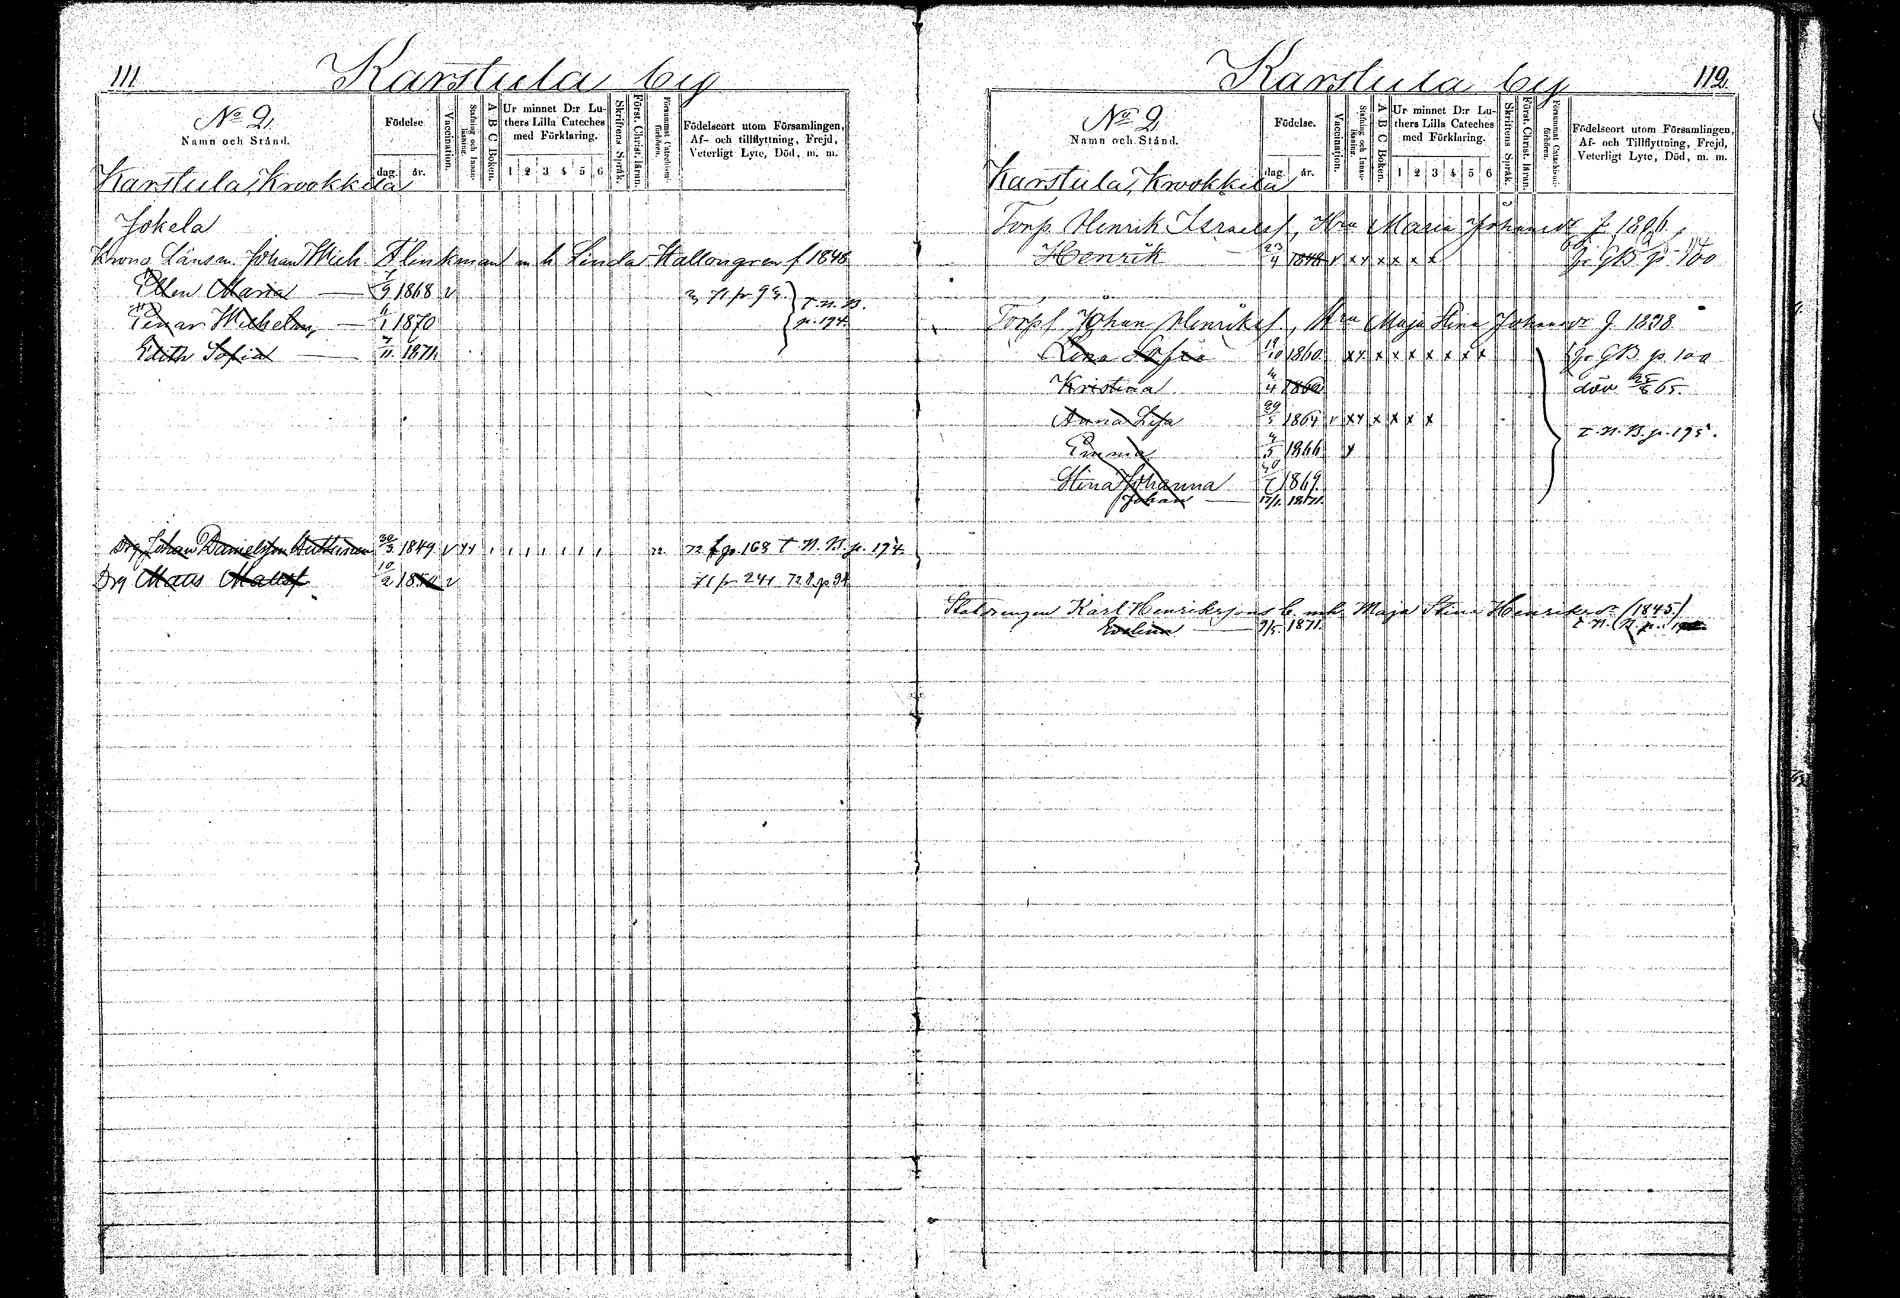 111.
Karstula by
No 2.
Namn och Stånd.
Födelse
dag. år.
Vaccination.
Stafning och Innanläsning.
A B C Boken.
Ur minnet D:r Luthers Lilla Cateches med Förklaring.
1 2 3 4 5 6
Skriftens Språk.
Först. Christ. läran.
Försummat Catechismiförhören.
Födelseort utom Församlingen,
Af- och tillflyttning, Frejd,
Veterligt Lyte, Död, m. m.
Karstula, Krookkila
Jokela
Krono Länsm. Johan Wilh. Flinkman m h Linda Hallongren f 1848
Ellen Maria 1868 v
Einar Wilhelm 1870 T. N. B. p. 194.
Edith Sofia 1871.
Drg Johan Danielsson Huttunen 30/3 1849 v 72 f p. 168 T. N. B. p. 194.
Drg Matts Mattsf 10/2 1850 v 71 fr 241 72 f p 94
112.
Karstula by
No 2
Namn och Stånd.
Födelse.
dag. år.
Vaccination.
Stafning och Innanläsning.
A B C Boken.
Ur minnet D:r Luthers Lilla Cateches med Förklaring.
1 2 3 4 5 6
Skriftens Språk.
Först. Christ. läran.
Försummat Catechismiförhören.
Födelseort utom Församlingen,
Af- och Tillflyttning, Frejd,
Veterligt Lyte, Död, m. m.
Karstula, Krookkila
Torp. Henrik Israelsf, Hru Maria Johansdr f 1806.
Henrik 23/4 1848 v x x x x x x fr GB p. 100
Torpf Johan Henriksf, Hru Maja Stina Johansdr f. 1838
Lena Sofia 19/10 1860 x x x x x x x x x fr GB p. 100
Kristina 4/4 1862 död 25/6 65.
Anna Lisa 29/5 1864 v x x x x x x T. N. B. p. 195.
Emma 4/5 1866 x
Stina Johanna 1869.
Johan 17/1. 1871.
Statdrengen Karl Henrikssons b. mh Maja Stina Henriksdr (1845.)
Evelina 9/5. 1871. T. N. B. p.